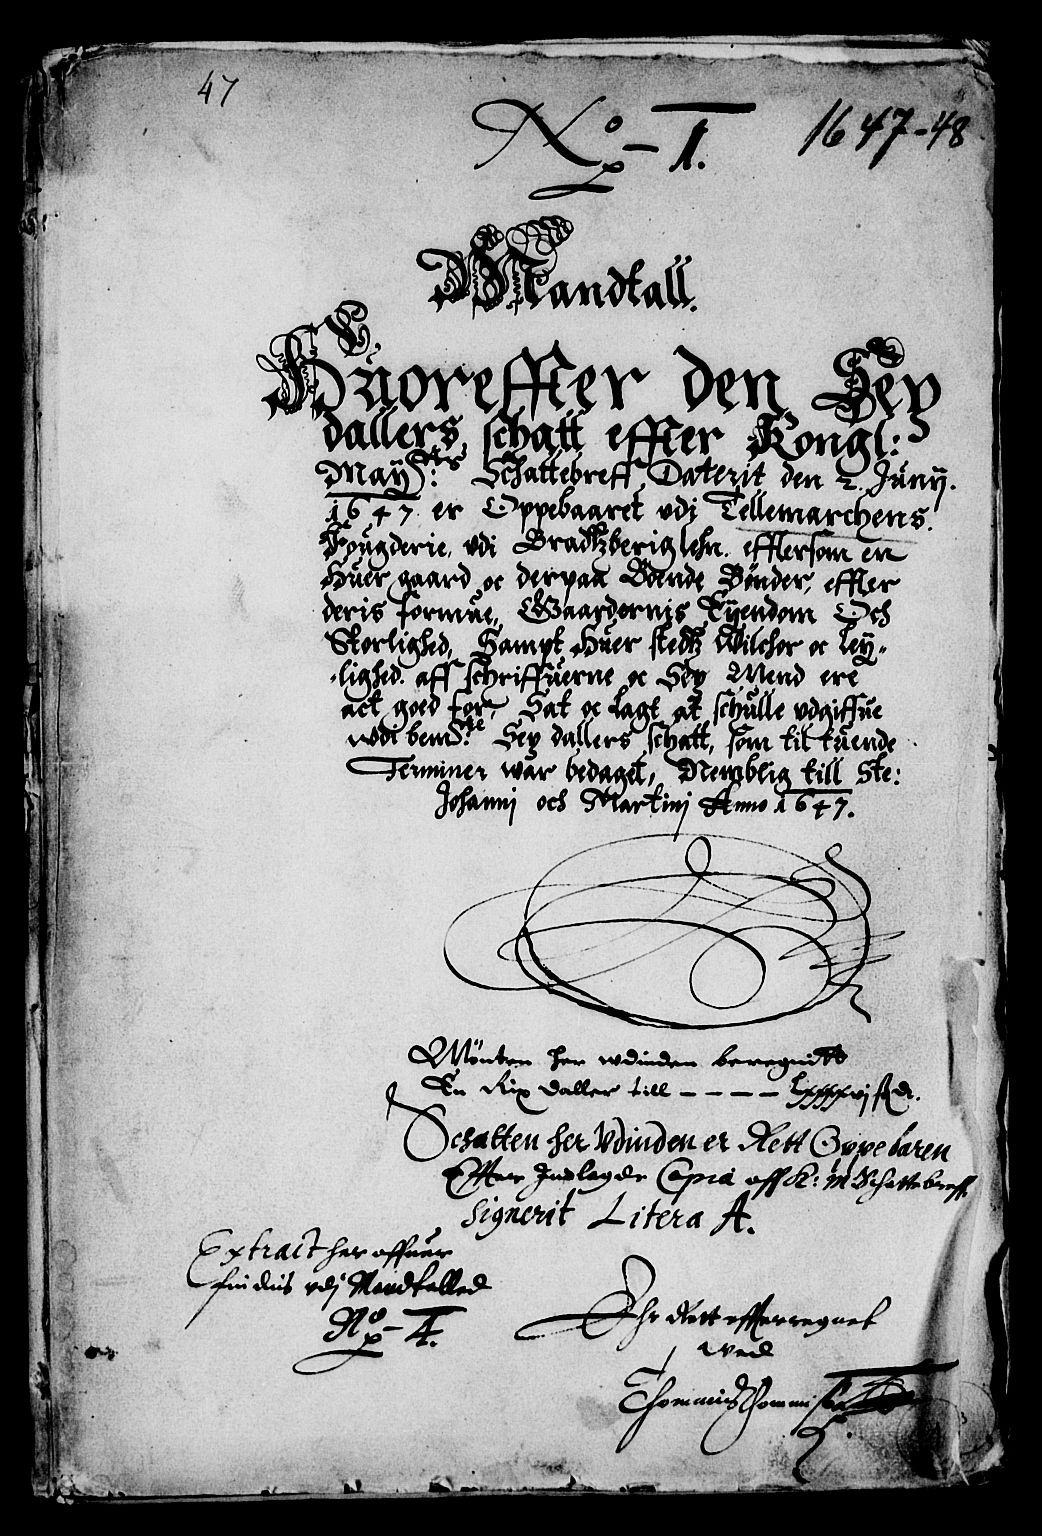 47
No 1.
1647-48
Mandtall.
Huoreffter den Sex
dallers schatt effter Kongl:
May: Schattebreff Daterit den 2. Juny.
1647 er Oppebaaret vdi Tellemarchens.
Fougderie, vdi Bradtzberig lehn. efftersom en
Huer gaard oc derpaa Boende Bønder, effter
deris formue, Gaardernis Eyendom Och
Storlighed, Sampt Huer stedtz Wilchor oc ley-
-lighed. aff schriffuerne oc Sex Mend ere
act goed for, Sat oc lagt at schulle vdgiffue
wdi bemte Sex dallers schatt, som til tuende
Terminer war bedaget, Nemblig till Ste:
Johannj och Martinj Anno 1647.
Mönten her wdinden beregnitt
En Rix daller till - - - - Lxxxxvj ß dr.
Schatten her Vdinden er Rett Oppebaren
Effter Indlagde Copia aff K: M Schattebreff
Signerit Litera A.
Extract her offuer
findis vdj Mandtalled
No 4.
Ehr Rett effterregnet
wed
Thommis Thommisen